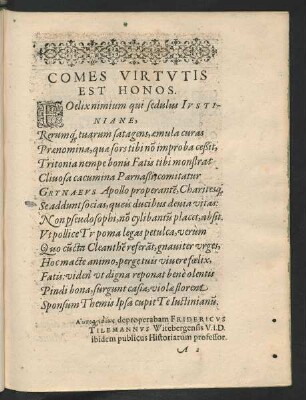 COMES VIRTVTIS
EST HONOS.
FOelix nimium qui sedulus IVSTI-
NIANE,
Rerumq́, tuarum satagens, æmula curas
Prænomina, quæ fors tibi nō improba cessit,
Tritonia nempe bonis Fatis tibi monstrat
Clivosa cacumina Parnassi, comitatur
GRYNAEVS. Apollo properantē, Charitesq́;
Se addunt socias, queis ducibus devia vitas:
Non pseudosophi, nō cylibantū placet, absit,
Vt pollice Tr poma legas petulca, verùm
Quo cūcta Cleanthē referāt, gnaviter vrges,
Hoc macte animo, perge tuis vivere fœlix,
Fatis: videl vt digna reponat benè olentis
Pindi bona, surgunt casiæ, violæ florent
Sponsum Themis Ipsa cupit Te Iustinianū.
deproperabam FRIDERICVS
TILEMANNVS Witebergensis V.I.D.
ibidem publicus Historiarum professor.
A 2